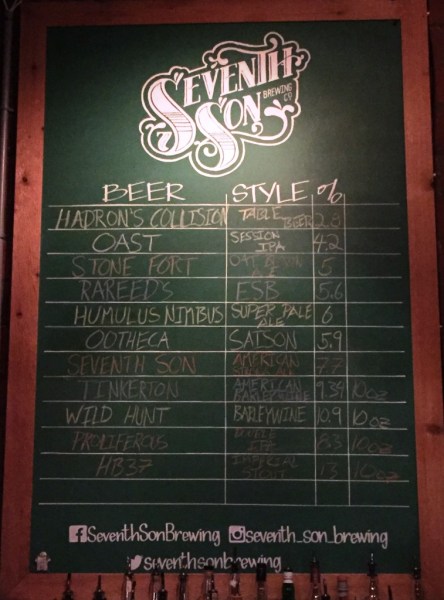 SEVENTH
SON
BREWING
CO
BEER STYLE %
HADRON'S COLLISION TABLE BEER 2.8
OAST SESSION IPA 4.2
STONE FORT OAT 5
RAREED'S ESB 5.6
HUMULUS NIMBUS SUPER PALE ALE 6
OOTHECA SAISON 5.9
SEVENTH SON AMERICAN 7.7
TINKERTON AMERICAN BARLEYWINE 9.34 10oz
WILD HUNT BARLEYWINE 10.9 10oz
PROLIFEROUS DOUBLE IPA 8.3 10oz
HB37 IMPERIAL STOUT 13 10oz
SeventhSonBrewing seventh_son_brewing
seventhsonbrewing